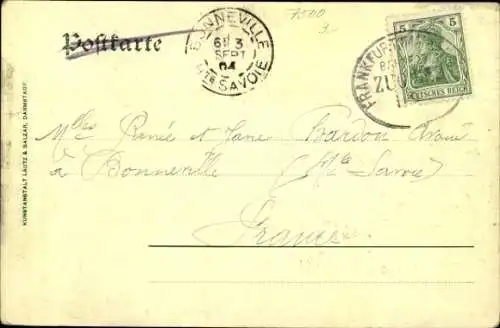 Postkarte
BONNEVILLE
6E 3
SEPT
04
HTE SAVOIE
7500
5 5
DEUTSCHES REICH
FRANKFUR
ZU
Melles Renée et Jane Bardon Avoué
à Bonneville (Hte Savoie)
France
KUNSTANSTALT LAUTZ & BALZAR, DARMSTADT.